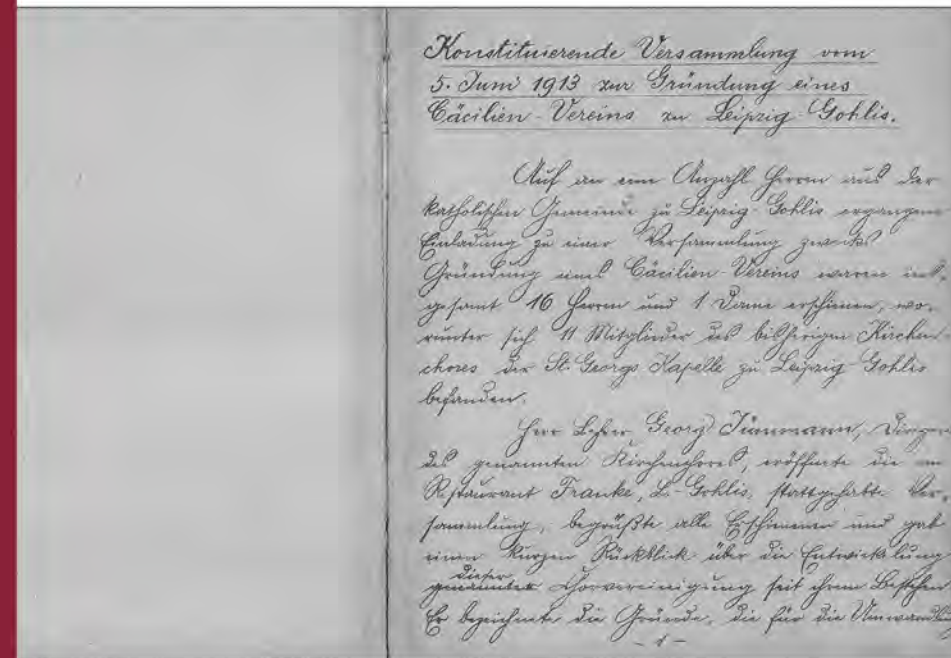 Konstituierende Versammlung vom
5. Juni 1913 zur Gründung eines
Cäcilien-Vereins zu Leipzig-Gohlis.
Auf an eine Anzahl Herren aus der
katholischen Gemeinde zu Leipzig-Gohlis ergangene
Einladung zu einer Versammlung zwecks
Gründung eines Cäcilien-Vereins waren ins-
gesamt 16 Herren und 1 Dame erschienen, wo-
runter sich 11 Mitglieder des bisherigen Kirchen-
chores der St. Georgs Kapelle zu Leipzig Gohlis
befanden.
Herr Lehrer Georg
des genannten Kirchenchores, eröffnete die im
Restaurant Franke, L.-Gohlis, stattgehabte Ver-
sammlung, begrüßte alle Erschienenen und gab
einen kurzen Rückblick über die Entwickelung
dieser
genannten Chorvereinigung seit ihrem Bestehen.
Er bezeichnete die Gründe, die für die Umwandlung
- 1 -